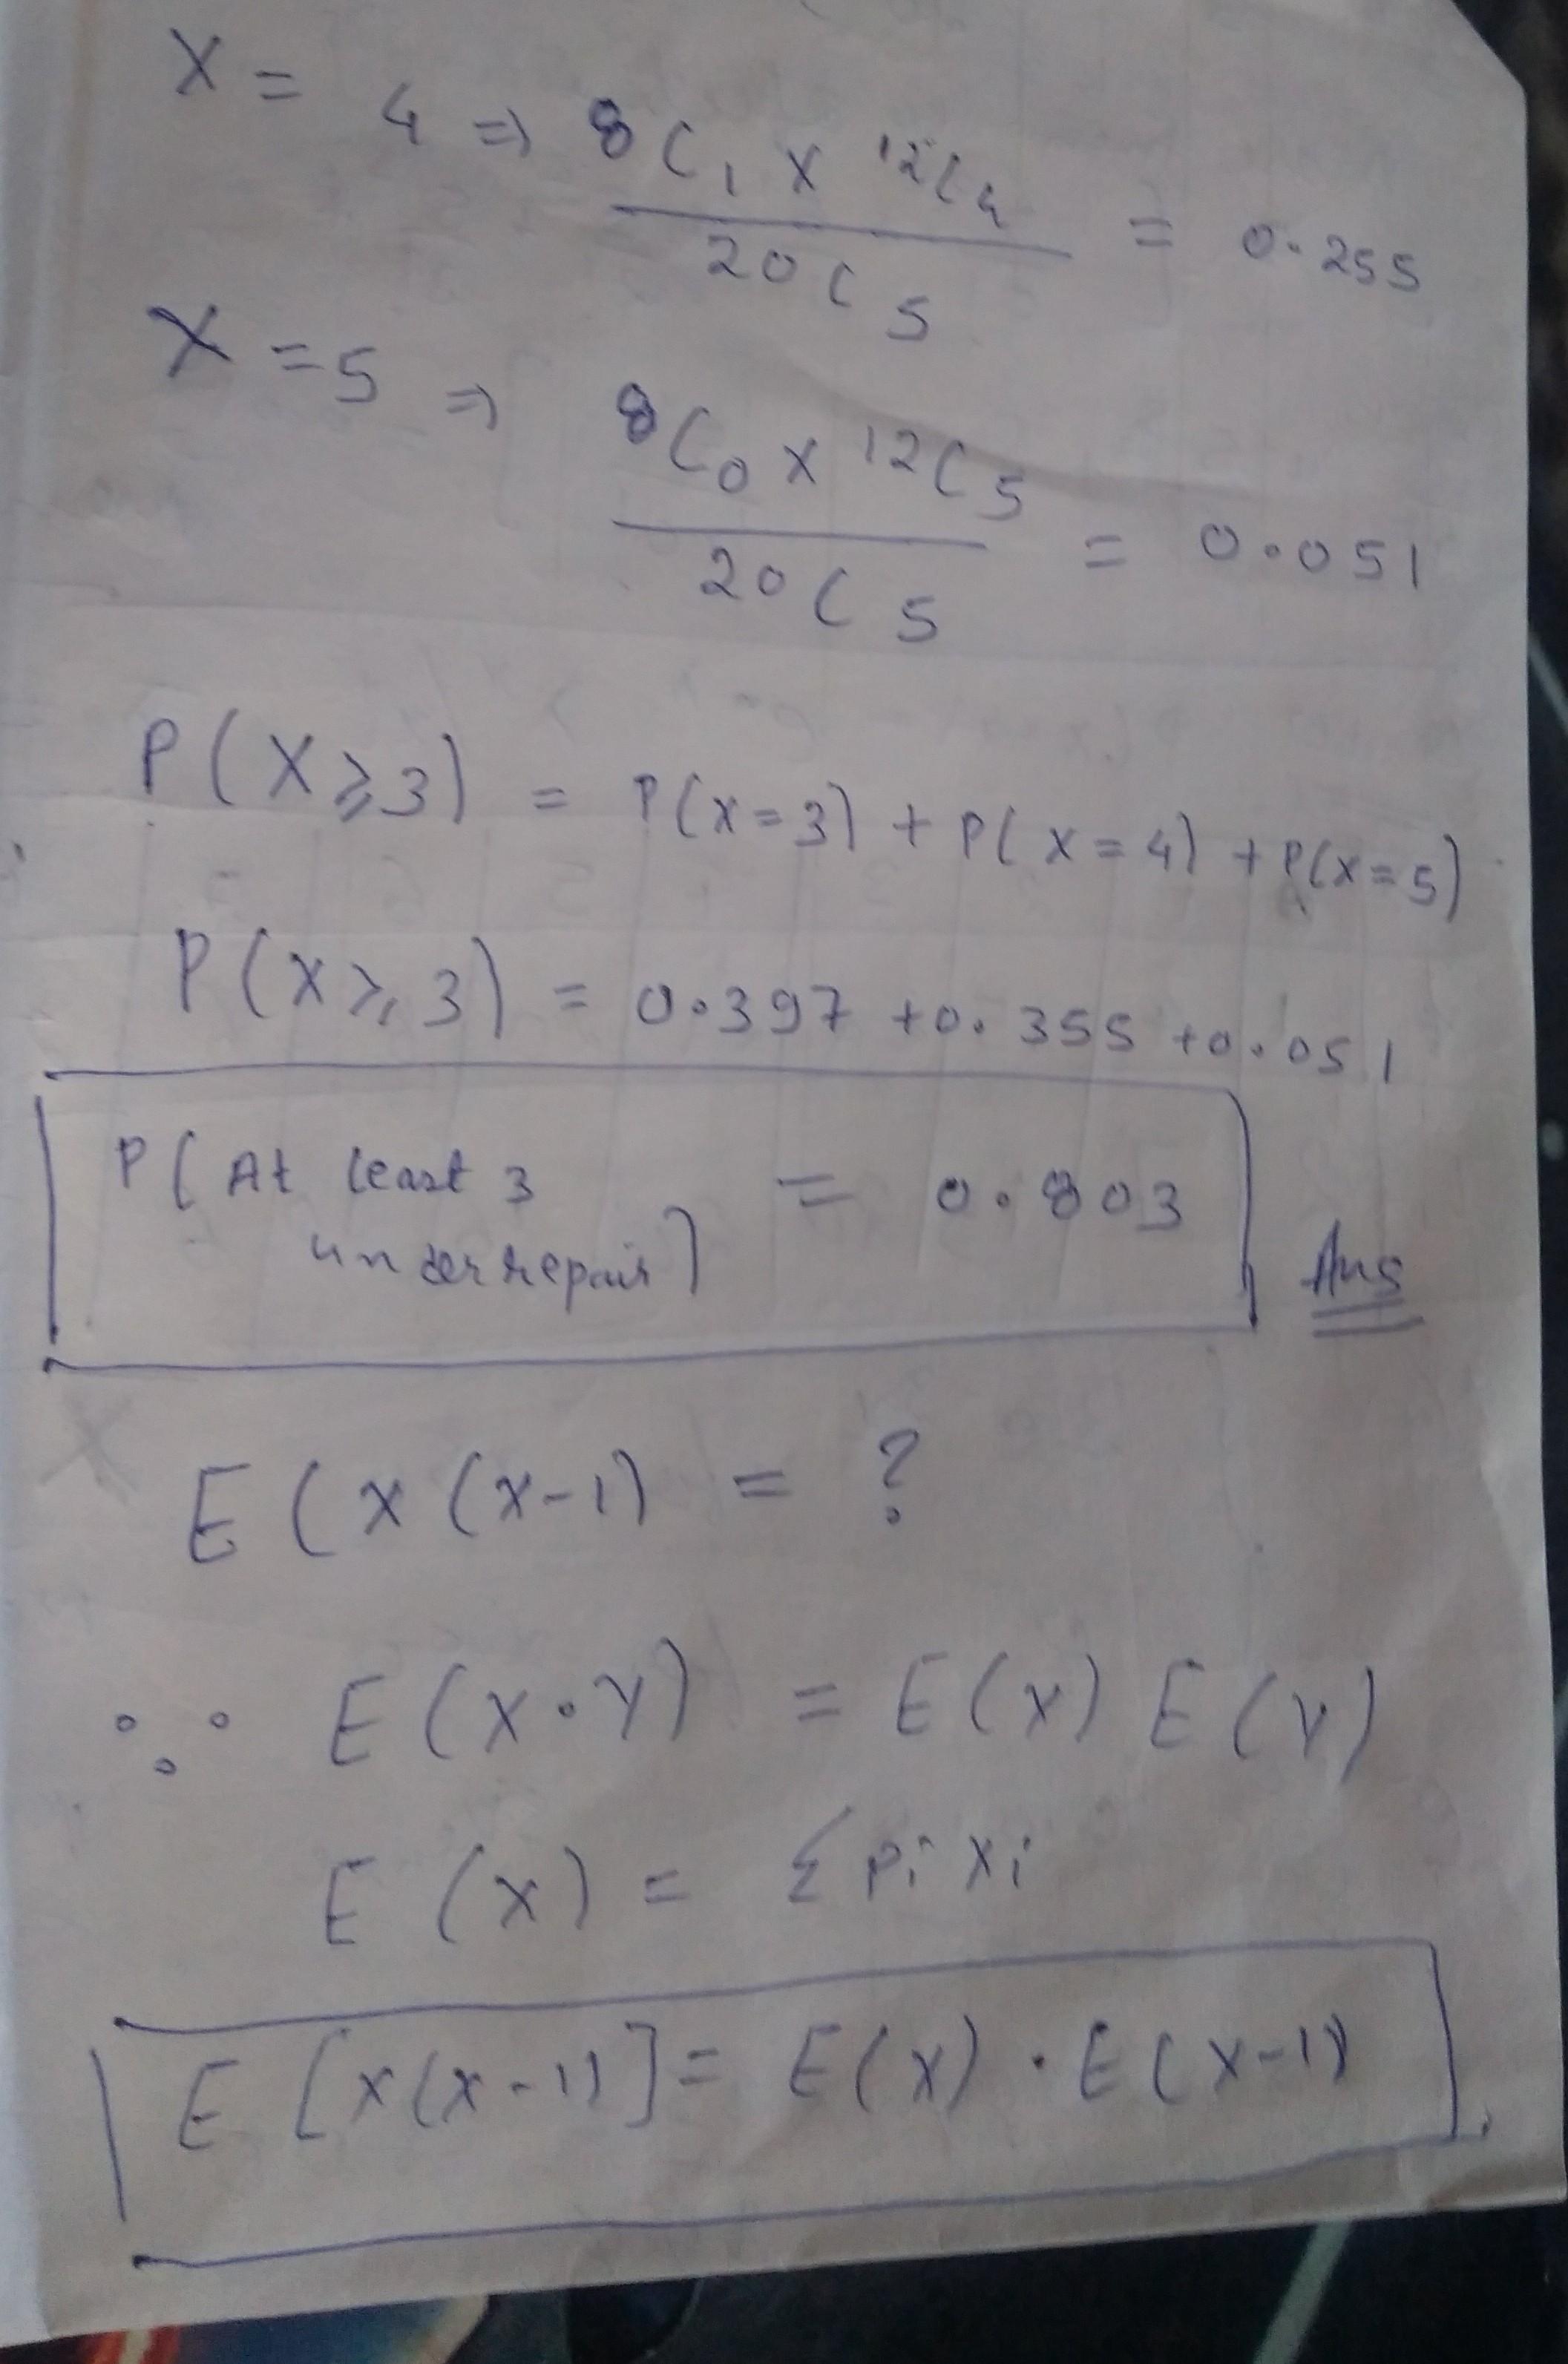 X = 4 => 8C1 x 12C4 / 20C5 = 0.255
X = 5 => 8C0 x 12C5 / 20C5 = 0.051
P(X ⩾ 3) = P(X=3) + P(X=4) + P(X=5)
P(X ⩾ 3) = 0.397 + 0.355 + 0.051
P(At least 3 = 0.803
under repair) Ans
E(X(X-1) = ?
∵ E(X.Y) = E(X) E(Y)
E(X) = Σ Pi Xi
E[X(X-1)] = E(X) . E(X-1)